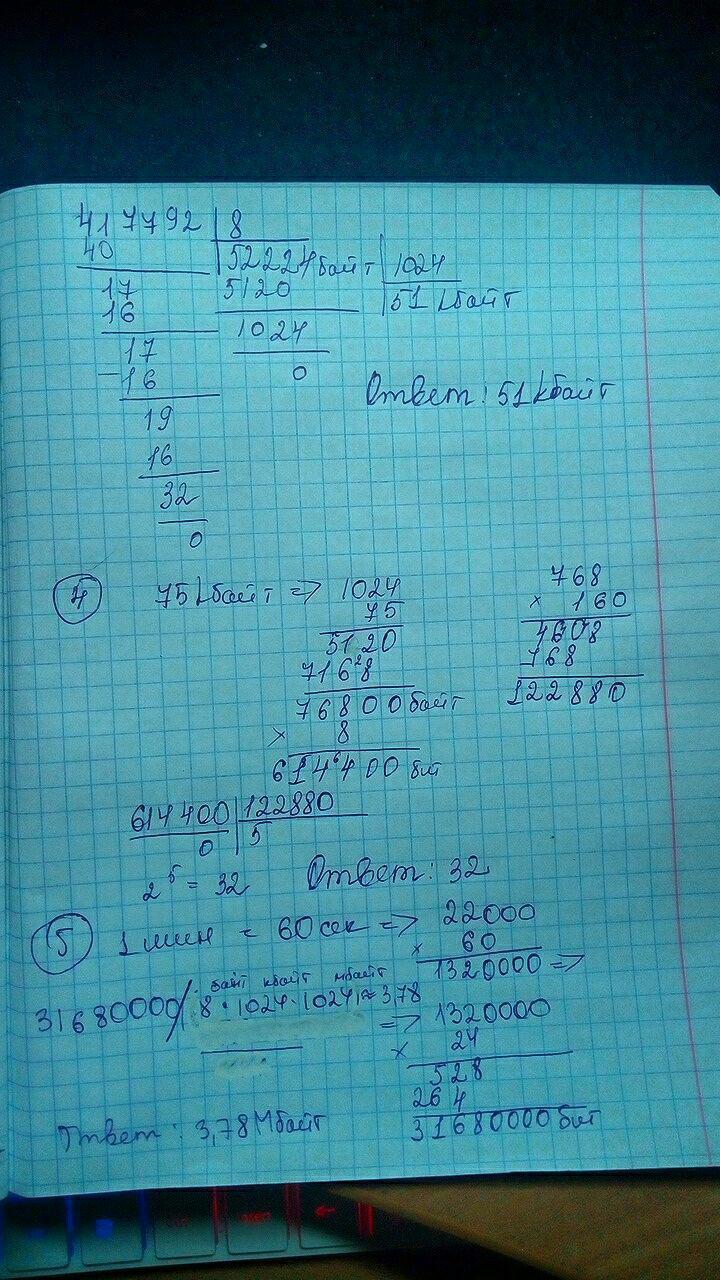 417792 | 8
40 | 52224 байт | 1024
17 5120 | 51 кбайт
16 1024
17 0
-16
Ответ: 51 кбайт
19
16
32
0
④ 75 кбайт => 1024
75
5120
7168
76800 байт
× 8
614400 бит
768
× 160
4608
768
122880
614400 | 122880
0 | 5
2⁵ = 32 Ответ: 32
⑤ 1 мин = 60 сек => 22000
× 60
1320000 =>
байт кбайт мбайт
31680000 / 8 · 1024 · 1024 ≈ 3,78
=> 1320000
× 24
528
264
31680000 бит
Ответ: 3,78 Мбайт